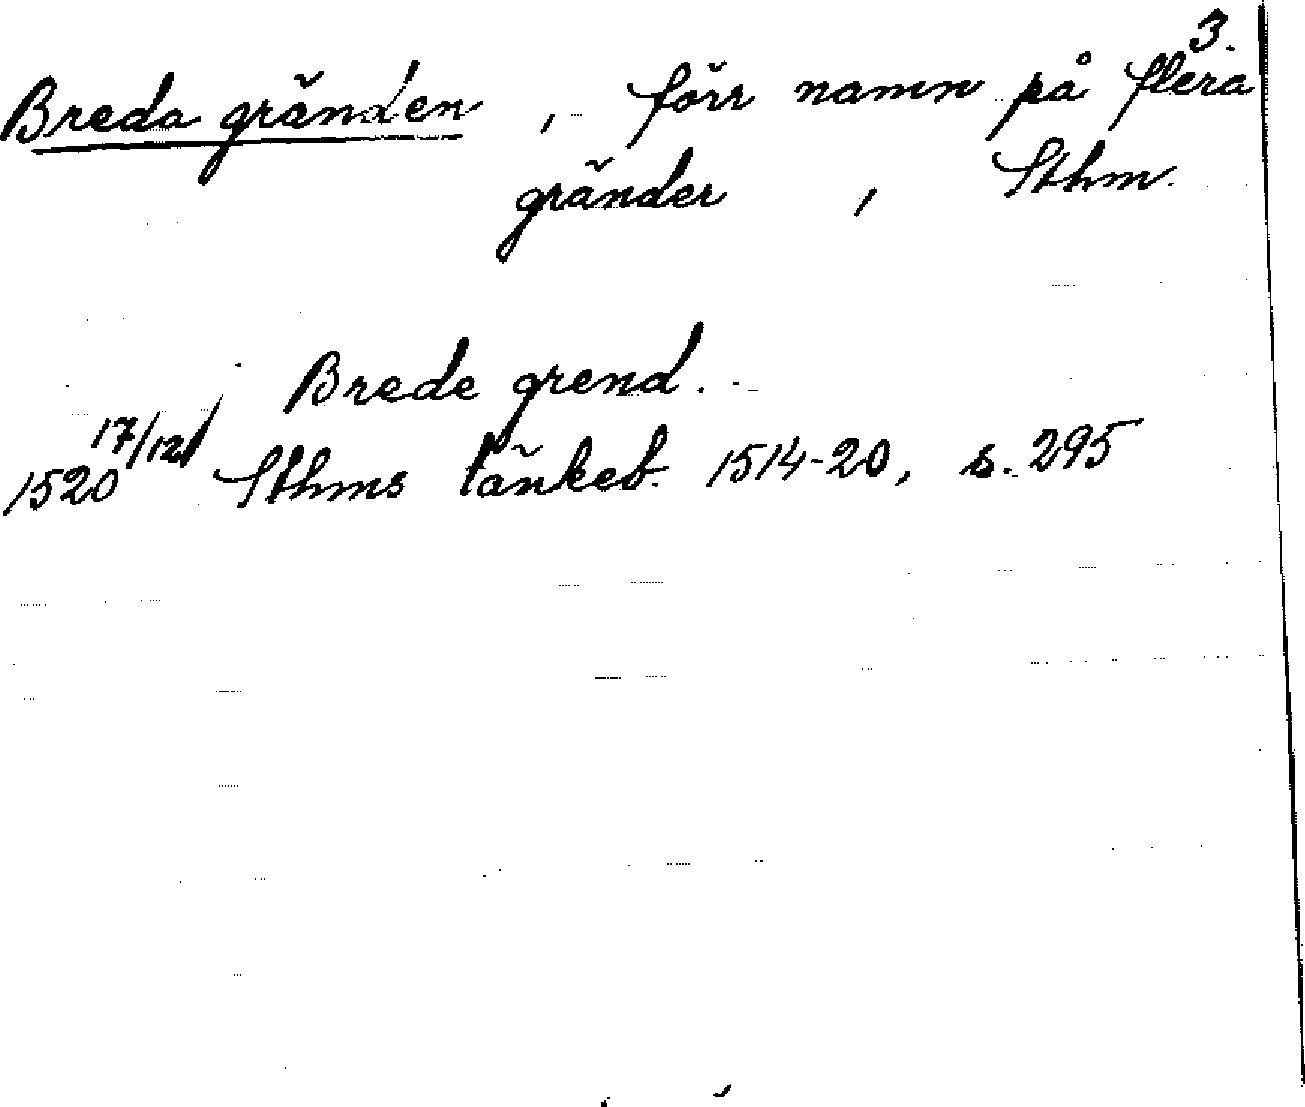 3.
Breda gränden, förr namn på flera
gränder, Sthm.
Brede grend.
1520 17/12 Sthms tänkeb. 1514-20, s. 295